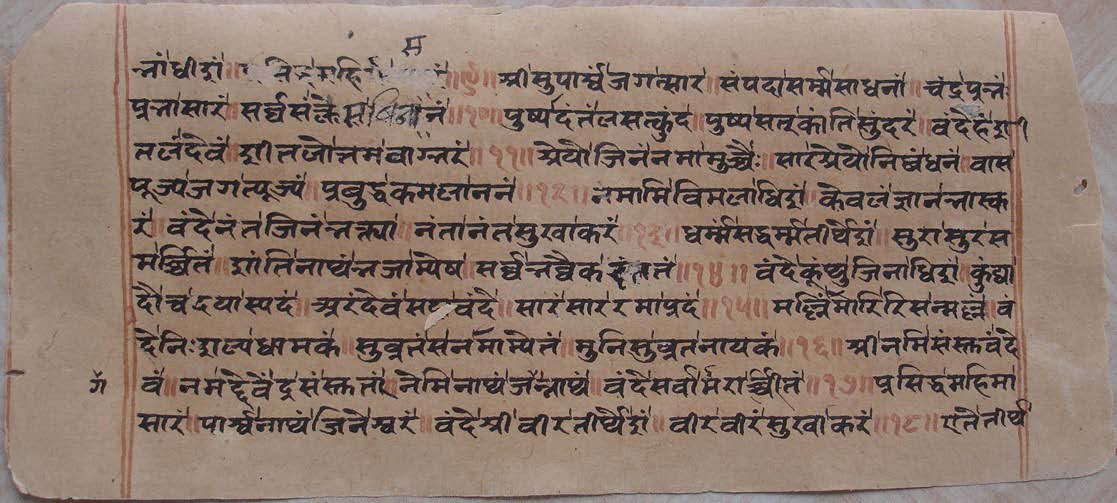 न्नांधीशं ॥ ॥९॥ श्रीसुपार्श्वंजगत्सार संपदासर्म्मसाधनं ॥ चंद्रपन्नं
पन्नासारं सर्व्वसंकै ॥१०॥ पुर्ष्यदंतंलसत्कुंद पुष्पसत्कांतिसुंदरं ॥ वंदेहंशी
तलंदेवं शीतलोत्तमवाग्भरं ॥११॥ श्रेयोजिनंनमामुच्चैः सारश्रेयोनिबंधनं ॥ वास
पूज्यंजगत्पूज्यं प्रबुद्धकमलाननं ॥१२॥ नमामिविमलाधिशं केवलंज्ञानन्नास्क
रं वंदेनंतजिनंन्नक्त्या नंतानंतसुखाकरं ॥१३॥ धर्म्मंसद्धर्म्मतीर्थेशं सुरासुरस
मर्च्चितं शांतिनाथंन्नजाम्येष सर्व्वन्नव्यैक ॥१४॥ वंदेकुंथुंजिनाधिशं कुंथ्वा
दौच्चदयास्पदं अरंदेवं वंदे ॥ सारंसाररमाप्रदं ॥१५॥ मल्लिंमारिरिसन्मल्लं वं
देनिःशल्यधामकं ॥ सुव्रतंसंनर्माम्येतं मुनिसुव्रतनायकं ॥१६॥ श्रीनमिंसंस्तवंदे
वं ॥ नमद्देवेंद्रसंस्ततां नेमिनाथं वंदेसर्वार्मरार्च्चीतं ॥१७॥ प्रसिद्धमहिमा
सारं ॥ पार्श्वनाथंजिनेश्वरं ॥ वंदेश्रीवीरतीर्थेशं वीरवीरंसुखाकरं ॥१८॥ एतेतीर्थ